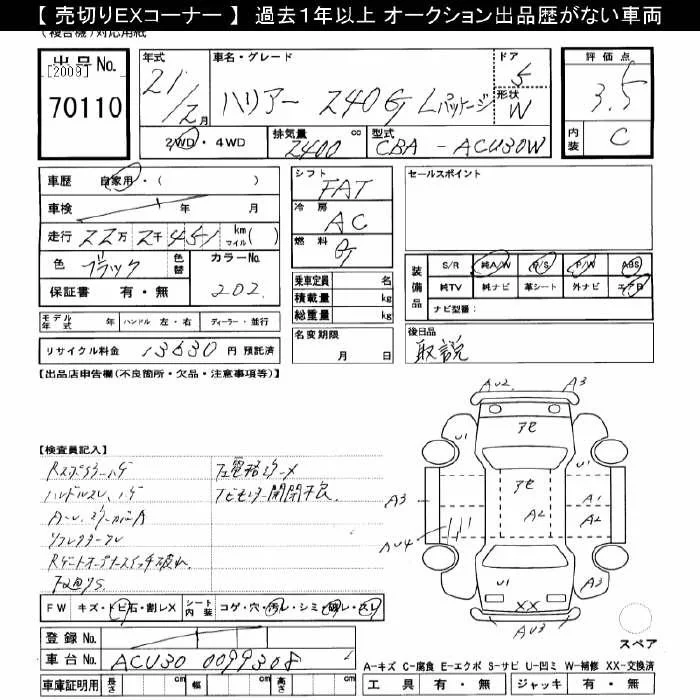 【 売切りEXコーナー 】 過去1年以上 オークション出品歴がない車両
(複合機)対応用紙
出品No.
[2009]
70110
年式
21/2月
車名・グレード
ハリアー 240G Lパッケージ
ドア
5
形状
W
評価点
3.5
内装
C
2WD・4WD
排気量
2400
cc
型式
CBA-ACU30W
車歴 自家用・( )
車検 年 月
走行 22万 2千 451 km マイル( )
色 ブラック
色替
カラーNo.
202
保証書 有・無
モデル年式 年 ハンドル 左・右 ディーラー・並行
リサイクル料金 13630 円 預託済
シフト
FAT
冷房
AC
燃料
G
乗車定員 名
積載量 kg
総重量 kg
名変期限
月 日
セールスポイント
装備品
S/R 純A/W P/S P/W ABS
純TV 純ナビ 革シート 外ナビ エアB
ナビ型番:
後日品
取説
【出品店申告欄(不良箇所・欠品・注意事項等)】
【検査員記入】
ハンドルスレ、ハゲ
モニター開閉不良
FW キズ・トビ石・割レX
シート内装 コゲ・穴・汚レ・シミ・破レ・スレ
登録No.
車台No. ACU30 0099308
車庫証明用 長さ cm 幅 cm 高さ cm
AU2 A3
U1 アセ U1
A3 アセ A1
A2 A2
AU4
U1 U1
A2 A3
XX
AU3
スペア
A-キズ C-腐食 E-エクボ S-サビ U-凹ミ W-補修 XX-交換済
工具 有・無 ジャッキ 有・無